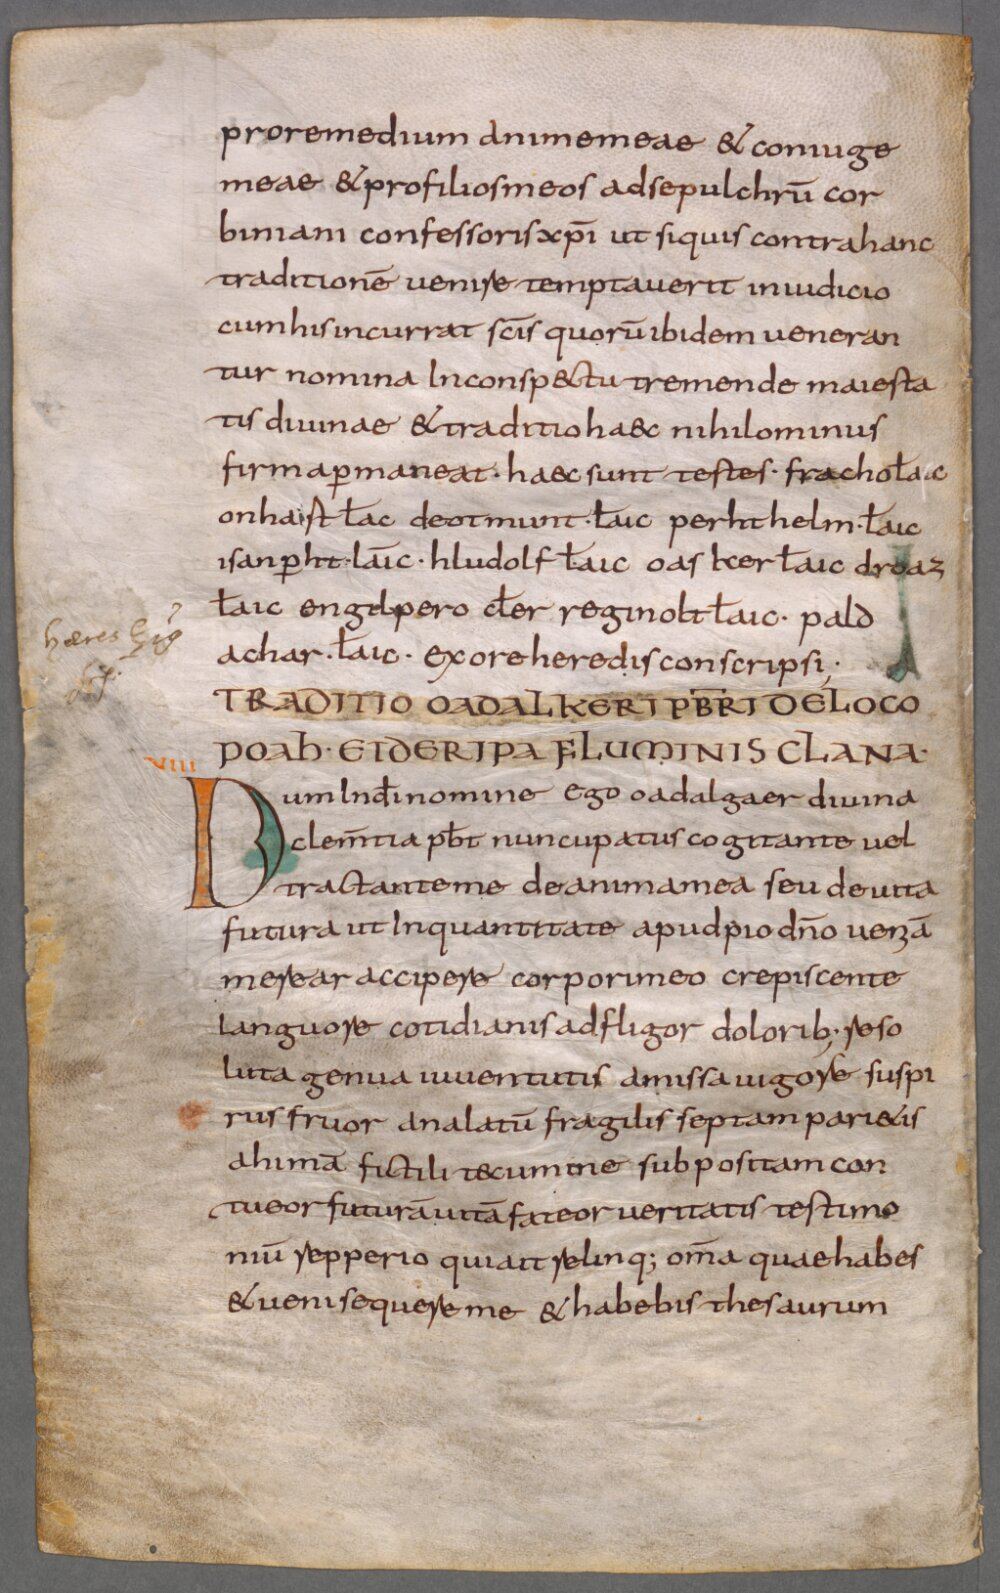 pro remedium anime meae & coniuge
meae & pro filios meos ad sepulchrū cor
biniani confessoris xp̄i ut siquis contra hanc
traditionē venire temptaverit in iudicio
cum his incurrat sc̄is quorū ibidem veneran
tur nomina In conspectu tremende maiesta
tis divinae & traditio haec nihilominus
firma p̄maneat · haec sunt testes · fracholt̄ laic
onhaist łac deotmunt · łaic perht helm · łaic
isanp̄ht · lāic · hludolf łaic oaskcer łaic droaz
łaic engilpero cłer reginolt łaic · pald
achar · łaic · ex ore heredis conscripsi ;
TRADITIO OADALKERI PB̄RI DE LOCO
POAH · EIDE RIPA FLUMINIS CLANA ·
VIII
Dum In dī nomine ego oadalgaer divina
clem̄tia pb̄t nuncupatus cogitante vel
tractante me de anima mea seu de vita
futura ut In quantitate apud pio dn̄o veniā
merear accipere corpori meo crepiscente
languore cotidianis adfligor dolorib; reso
luta genua iuventutis amissa vigore suspi
rus fruor analatū fragilis septam pari&is
animā fictili tecumine sub positam con
tueor futurā vitā fateor veritatis testimo
niū repperio qui ait relinq; om̄a quae habes
& veni sequere me & habebis thesaurum